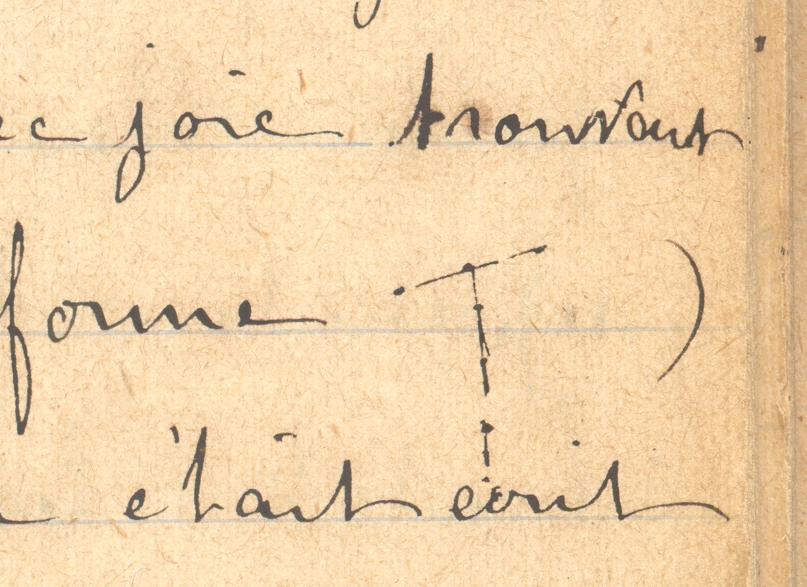 ec joie trouvant
forme T )
c'était écrit